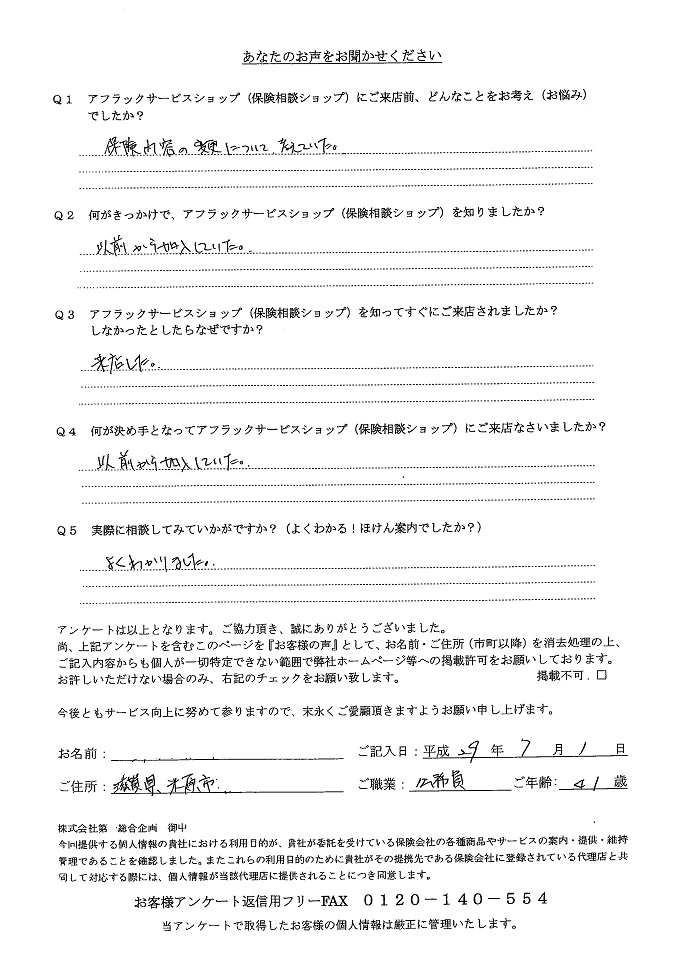 あなたのお声をお聞かせください
Q1 アフラックサービスショップ（保険相談ショップ）にご来店前、どんなことをお考え（お悩み）
でしたか？
保険内容の変更について、考えていた。
Q2 何がきっかけで、アフラックサービスショップ（保険相談ショップ）を知りましたか？
以前から加入していた。
Q3 アフラックサービスショップ（保険相談ショップ）を知ってすぐにご来店されましたか？
しなかったとしたらなぜですか？
来店した。
Q4 何が決め手となってアフラックサービスショップ（保険相談ショップ）にご来店なさいましたか？
以前から加入していた。
Q5 実際に相談してみていかがですか？（よくわかる！ほけん案内でしたか？）
よくわかりました。
アンケートは以上となります。ご協力頂き、誠にありがとうございました。
尚、上記アンケートを含むこのページを『お客様の声』として、お名前・ご住所（市町以降）を消去処理の上、
ご記入内容からも個人が一切特定できない範囲で弊社ホームページ等への掲載許可をお願いしております。
お許しいただけない場合のみ、右記のチェックをお願い致します。 掲載不可．□
今後ともサービス向上に努めて参りますので、末永くご愛顧頂きますようお願い申し上げます。
お名前： ご記入日：平成 29 年 7 月 1 日
ご住所：滋賀県 米原市 ご職業：公務員 ご年齢：41 歳
株式会社第一総合企画 御中
今回提供する個人情報の貴社における利用目的が、貴社が委託を受けている保険会社の各種商品やサービスの案内・提供・維持
管理であることを確認しました。またこれらの利用目的のために貴社がその提携先である保険会社に登録されている代理店と共
同して対応する際には、個人情報が当該代理店に提供されることにつき同意します。
お客様アンケート返信用フリーFAX 0120－140－554
当アンケートで取得したお客様の個人情報は厳正に管理いたします。